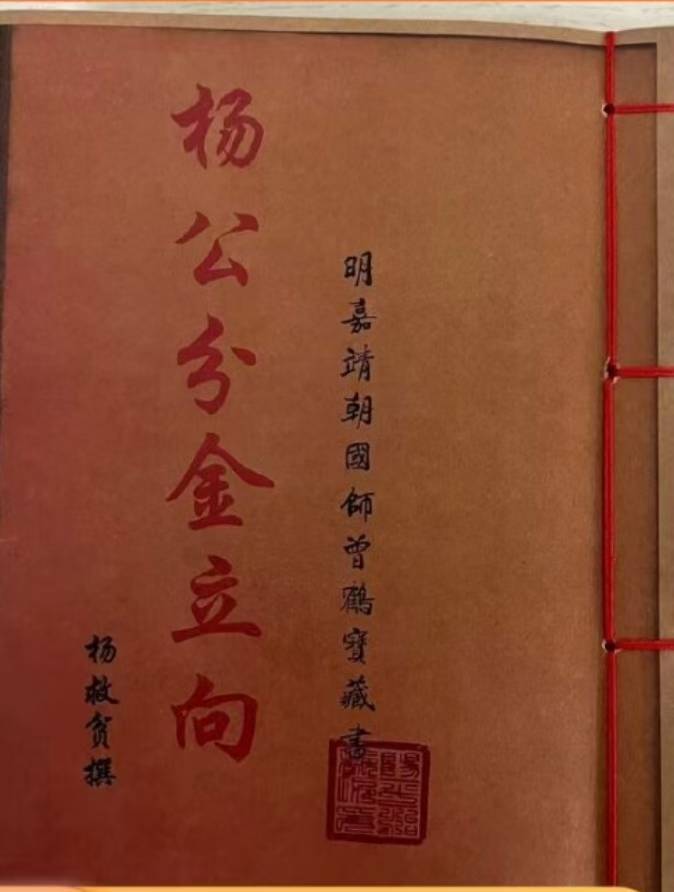 明嘉靖朝國師曾鶴寶藏書
杨公分金立向
杨救贫撰